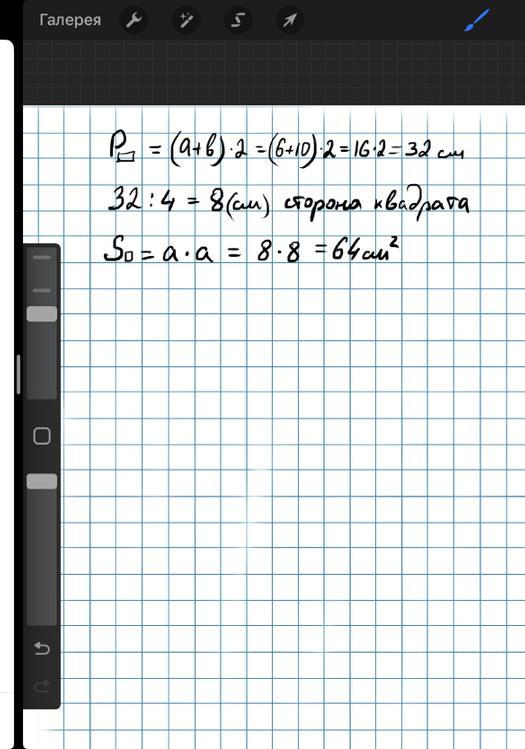 Галерея
P▭ = (a+b)·2 = (6+10)·2 = 16·2 = 32 см
32 : 4 = 8 (см) сторона квадрата
S□ = a·a = 8·8 = 64 см²